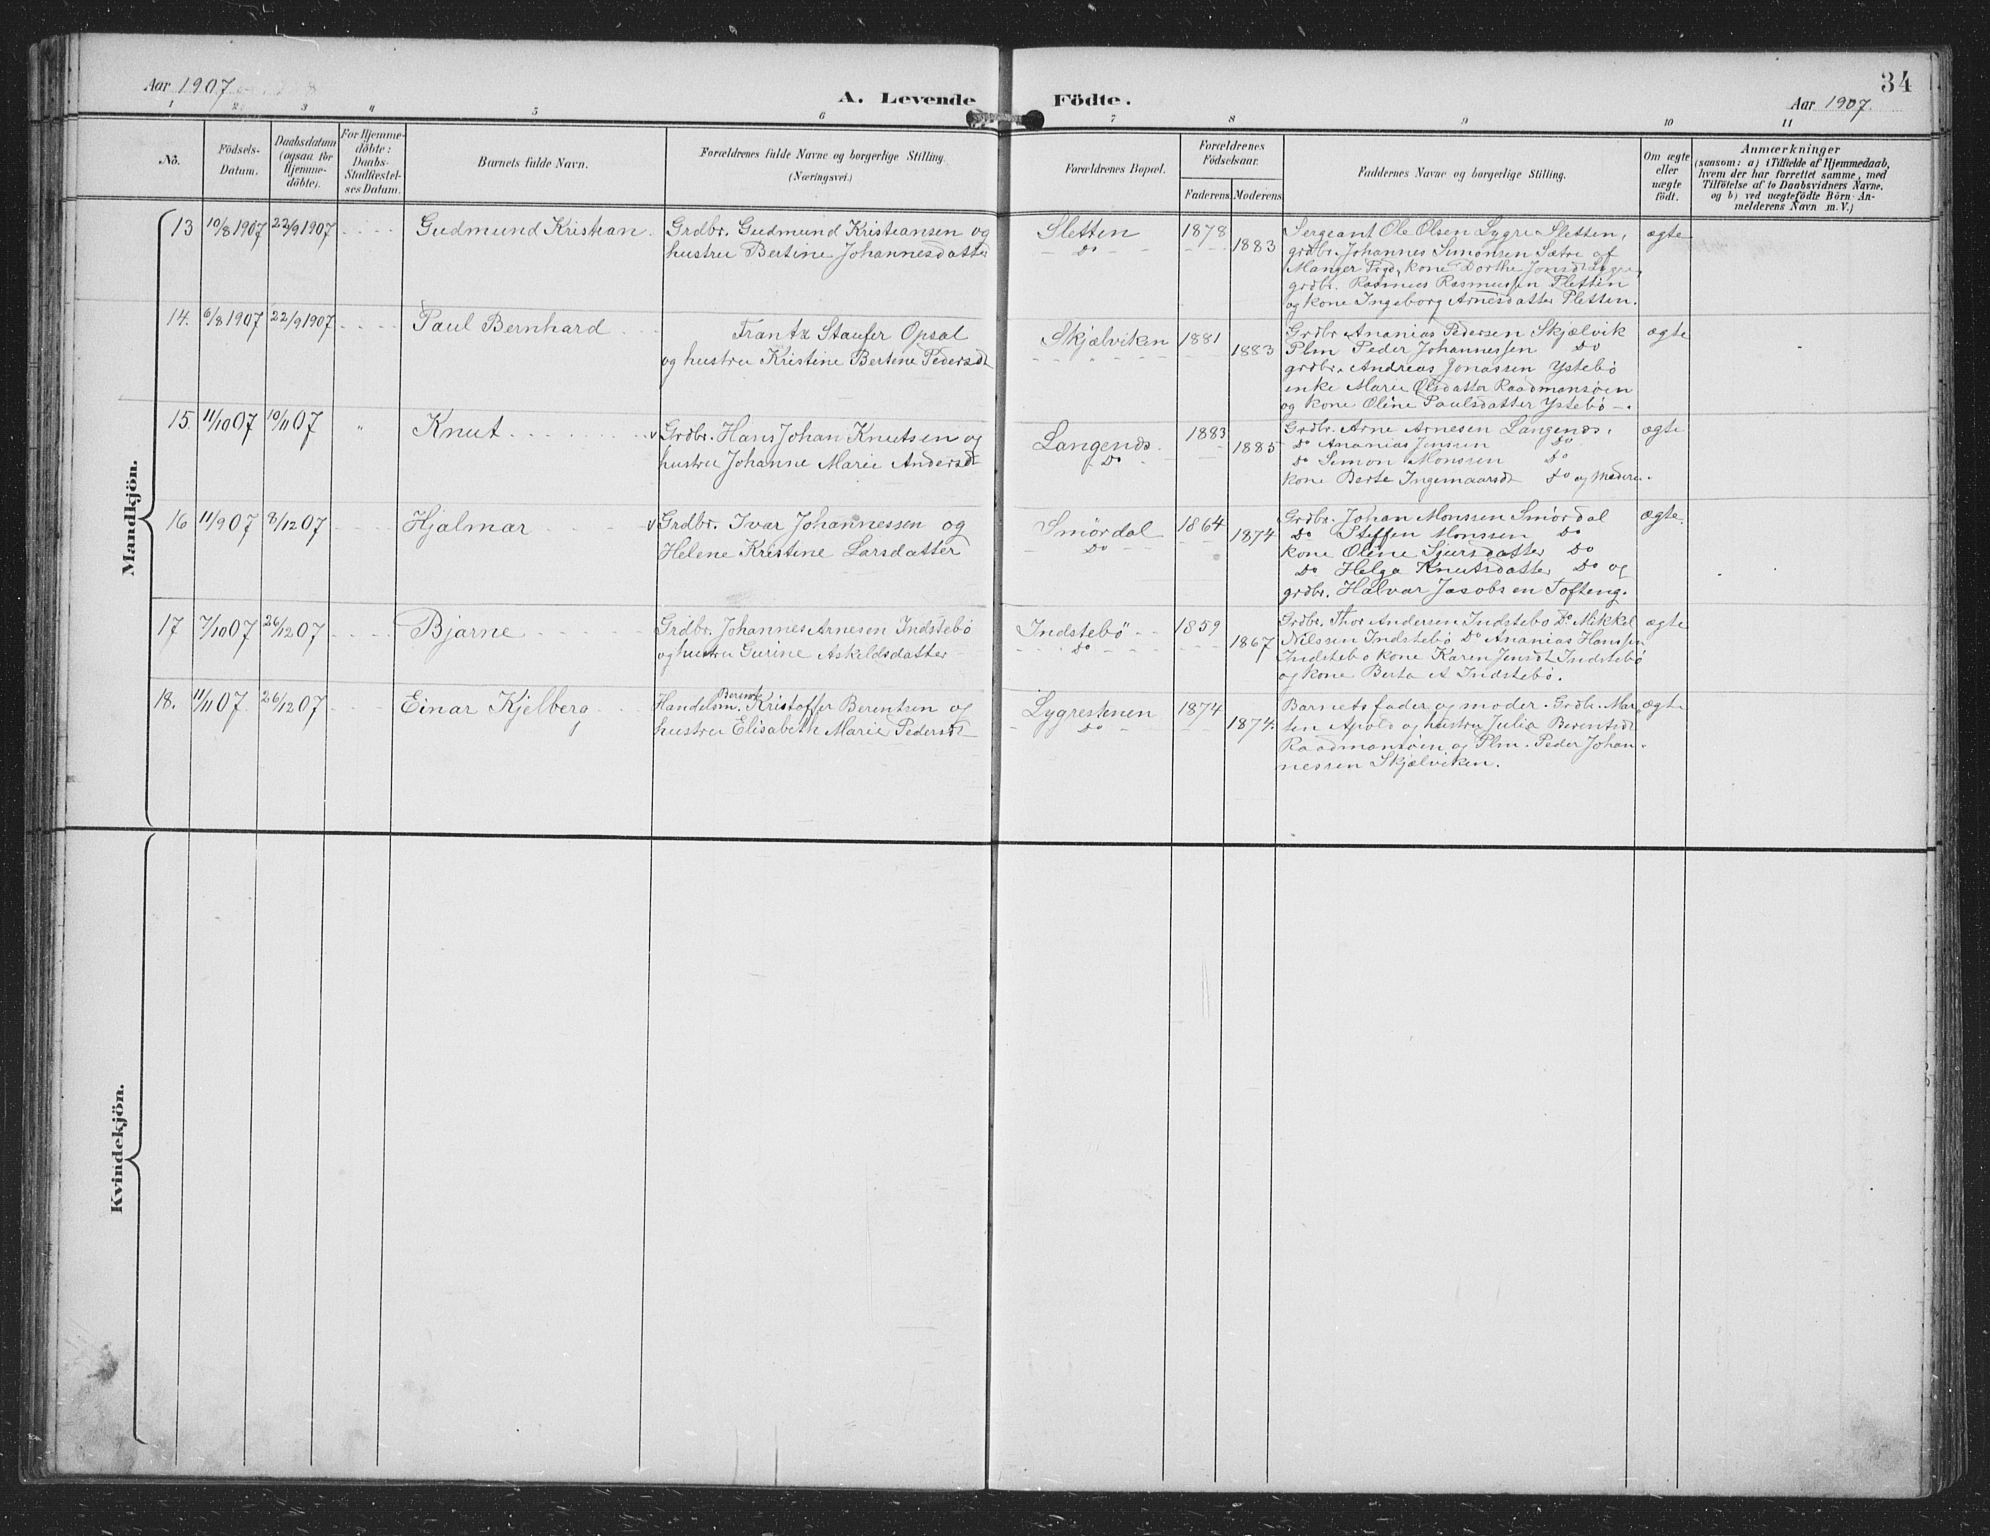 Aar 1907
A. Levende Födte.
34
Aar 1907.
1 2 3 4 5 6 7 8 9 10 11
No.
Födsels-
Datum.
Daabsdatum
(ogsaa for
Hjemme-
döbte).
For Hjemme-
döbte:
Daabs-
Stadfæstel-
ses Datum.
Barnets fulde Navn.
Forældrenes fulde Navne og borgerlige Stilling.
(Næringsvei.)
Forældrenes Bopæl.
Forældrenes
Födselsaar.
Faderens Moderens
Faddernes Navne og borgerlige Stilling.
Om ægte
eller
uægte
födt.
Anmærkninger
(saasom: a) i Tilfælde af Hjemmedaab,
hvem der har forrettet samme, med
Tilföielse af to Daabsvidners Navne.
og b) ved uægtefödte Börn An-
melderens Navn m. V.)
Mandkjön.
13 10/8 1907 22/9 1907 Gudmund Kristian
Grdbr. Gudmund Kristiansen og
hustru Bertine Johannesdatter
Sletten
Do
1878
1883
Sergeant Ole Olsen Lygre Sletten,
grdbr. Johannes Simonsen Sætre af
Manger Prgd, kone Dorthe Jonsdt
grdbr. Rasmus Rasmussen Sletten
og kone Ingeborg Arnesdatter Sletten.
ægte
14. 6/8 1907 22/9 1907 Paul Bernhard
Frantz Staufer Opsal
og hustru Kristine Bertine Pedersdt
Skjælviken
1881
1883
Grdbr. Ananias Pedersen Skjælvik
Plm Peder Johannessen Do
grdbr. Andreas Jonassen Ystebö
enke Marie Olsdatter Raadmansöen
og kone Oline Paulsdatter Ystebö.
ægte
15 11/10 07 10/11 07 Knut
Grdbr. Hans Johan Knutsen og
hustru Johanne Marie Andersdt
Langenös.
Do
1883
1885
Grdbr. Arne Arnesen Langenös.
Do Ananias Jenssen Do
Do Simon Monssen Do
kone Berte Ingemaarsdt Do og Moderen.
ægte
16 11/9 07 8/12 07 Hjalmar
Grdbr. Ivar Johannessen og
Helene Kristine Larsdatter
Smördal
Do
1864
1874
Grdbr. Johan Monssen Smördal
Do Steffen Monssen Do
kone Oline Sjursdatter Do
Do Helga Knutsdatter Do og
grdbr. Halvar Jacobsen Tofteng.
ægte.
17 7/10 07 26/12 07 Bjarne
Grdbr. Johannes Arnesen Indstebö
og hustru Gurine Askeldsdatter
Indstebö
Do
1859
1867
Grdbr. Thor Andersen Indstebö Do Mikkel
Nilssen Indstebö Do Ananias Hanssen
Indstebö kone Karen Jensdt Indstebö
og kone Berta A Indstebö.
ægte
18. 11/11 07 26/12 07 Einar Kjelberg
Handelsm. Kristoffer Berentsen og
hustru Elisabeth Marie Pedersdt
Lygrestenen
Do
1874
1874.
Barnets fader og moder. Grdbr. Mar-
ten Apold og hustru Julia Berentsdt
Raadmansöen og Plm. Peder Johan-
nessen Skjælviken.
ægte
Kvindekjön.